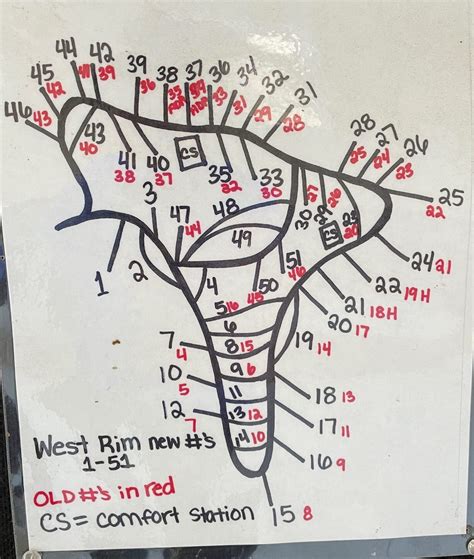 44
42
39
39
36
38
35
37
36
33
34
31
32
29
31
28
45
42
46
43
43
40
41
38
40
37
CS
35
32
33
30
28
25
27
24
26
23
25
22
3
47
44
48
49
30
27
29
26
23
20
CS
24 21
22 19H
21 18H
20 17
1
2
4
50
45
51
46
5 16
6
7
4
8 15
9 6
19 14
10
5
11
18 13
12
7
13 12
17 11
14 10
16 9
15 8
West Rim new #'s
1-51
OLD #'s in red
CS = comfort station